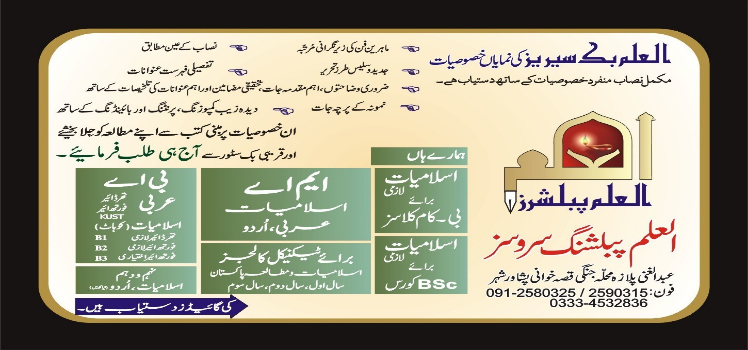 العلم بک سیریز کی نمایاں خصوصیات
مکمل نصاب منفرد خصوصیات کے ساتھ دستیاب ہے۔
ماہرین فن کی زیر نگرانی مُرتّبہ
نصاب کے عین مطابق
جدید و سلیس طرز تحریر
تفصیلی فہرست عنوانات
ضروری وضاحتوں، اہم مقدمہ جات، تحقیقی مضامین اور اہم عنوانات کی تلخیصات کے ساتھ
نمونہ کے پرچہ جات
دیدہ زیب کمپوزنگ، پرنٹنگ اور بائینڈنگ کے ساتھ
ان خصوصیات پر مبنی کتب سے اپنے مطالعہ کو جلا بخشئے
اور قریبی بک سٹور سے آج ہی طلب فرمایئے۔
العلم پبلشرز
العلم پبلشنگ سروسز
عبدالغنی پلازہ محلہ جنگی قصہ خوانی پشاور شہر
فون: 091-2580325 / 2590315
0333-4532836
ہمارے ہاں
اسلامیات
لازمی
برائے
بی۔کام کلاسز
اسلامیات
لازمی
برائے
BSc کورس
ایم اے
اسلامیات
عربی، اُردو
برائے ٹیکنیکل کالجز
اسلامیات و مطالعہ پاکستان
سال اول، سال دوم، سال سوم
بی اے
عربی تھرڈ ائیر
فورتھ ائیر
KUST
اسلامیات (کوہاٹ)
تھرڈ ائیر لازمی B1
فورتھ ائیر لازمی B2
فورتھ ائیر اختیاری B3
نہم و دہم
اسلامیات، اُردو
کی گائیڈز دستیاب ہیں۔